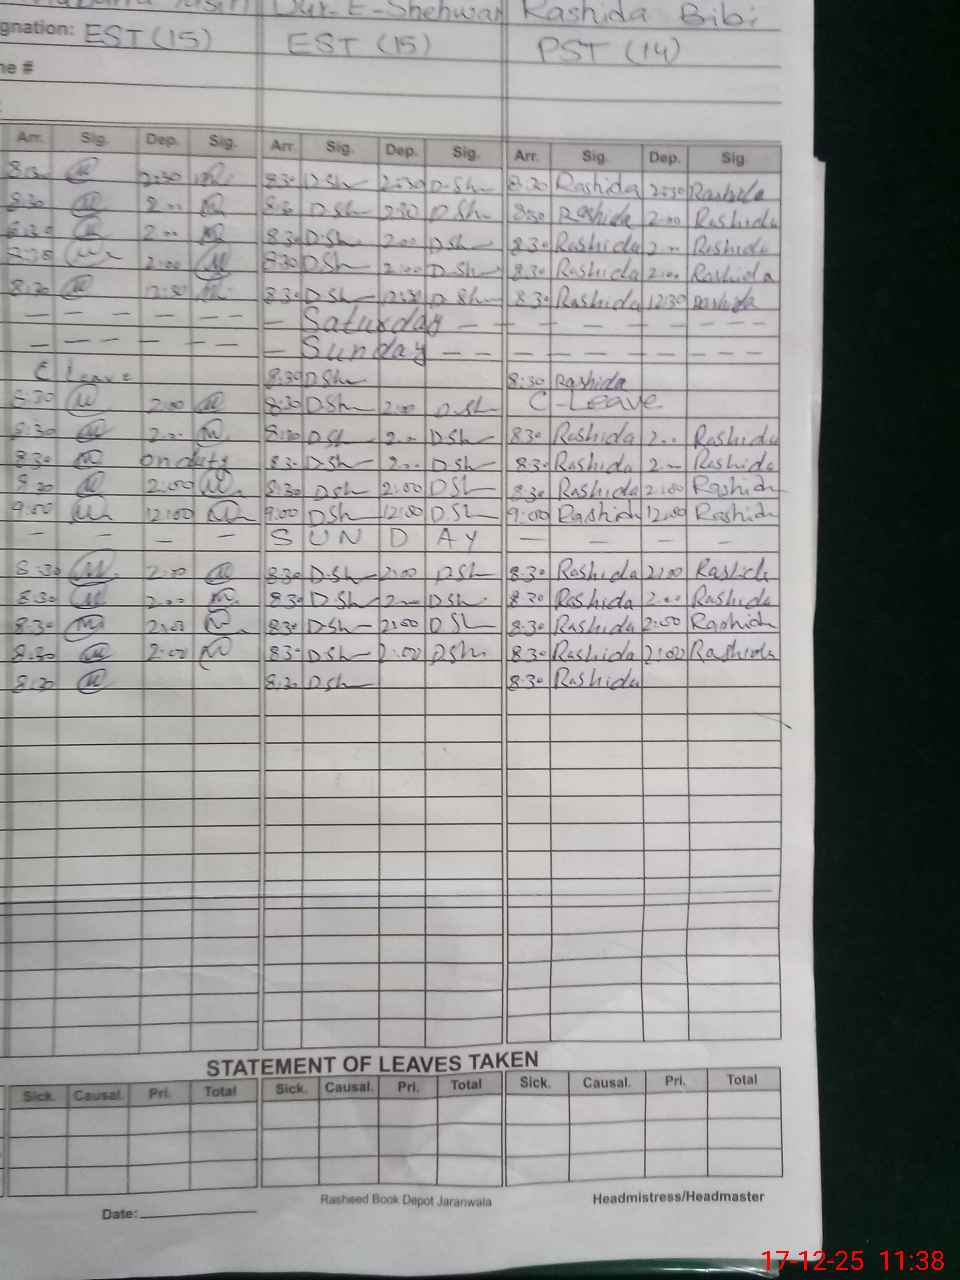 Dur-E-Shehwar Rashida Bibi
gnation: EST (15) EST (15) PST (14)
ne #
Arr. Sig. Dep. Sig. Arr. Sig. Dep. Sig. Arr. Sig. Dep. Sig
8:30 2:30 8:30 DSh 2:30 D.Sh 8:30 Rashida 2:30 Rashida
8:30 2:00 8:30 DSh 2:30 DSh 8:30 Rashida 2:00 Rashida
8:30 2:00 8:30 DSh 2:00 DSh 8:30 Rashida 2:00 Rashida
8:30 2:00 8:30 DSh 2:00 DSh 8:30 Rashida 2:00 Rashida
8:30 12:30 8:30 DSh 12:30 DSh 8:30 Rashida 12:30 Rashida
- - - - - - Saturday - - - - - - - -
- - - - - - Sunday - - - - - - - -
C leave 8:30 DSh 8:30 Rashida
8:30 2:00 8:30 DSh 2:00 DSh C-Leave
8:30 2:00 8:30 DSh 2:00 DSh 8:30 Rashida 2:00 Rashida
8:30 on duty 8:30 DSh 2:00 DSh 8:30 Rashida 2:00 Rashida
8:30 2:00 8:30 DSh 2:00 DSh 8:30 Rashida 2:00 Rashida
9:00 12:00 9:00 DSh 12:00 DSh 9:00 Rashida 12:00 Rashida
- - - - S U N D A Y - - - -
8:30 2:00 8:30 DSh 2:00 DSh 8:30 Rashida 2:00 Rashida
8:30 2:00 8:30 DSh 2:00 DSh 8:30 Rashida 2:00 Rashida
8:30 2:00 8:30 DSh 2:00 DSh 8:30 Rashida 2:00 Rashida
8:30 2:00 8:30 DSh 2:00 DSh 8:30 Rashida 2:00 Rashida
8:30 8:30 DSh 8:30 Rashida
STATEMENT OF LEAVES TAKEN
Sick. Causal. Pri. Total Sick. Causal. Pri. Total Sick. Causal. Pri. Total
Date: Rasheed Book Depot Jaranwala Headmistress/Headmaster
17-12-25 11:38